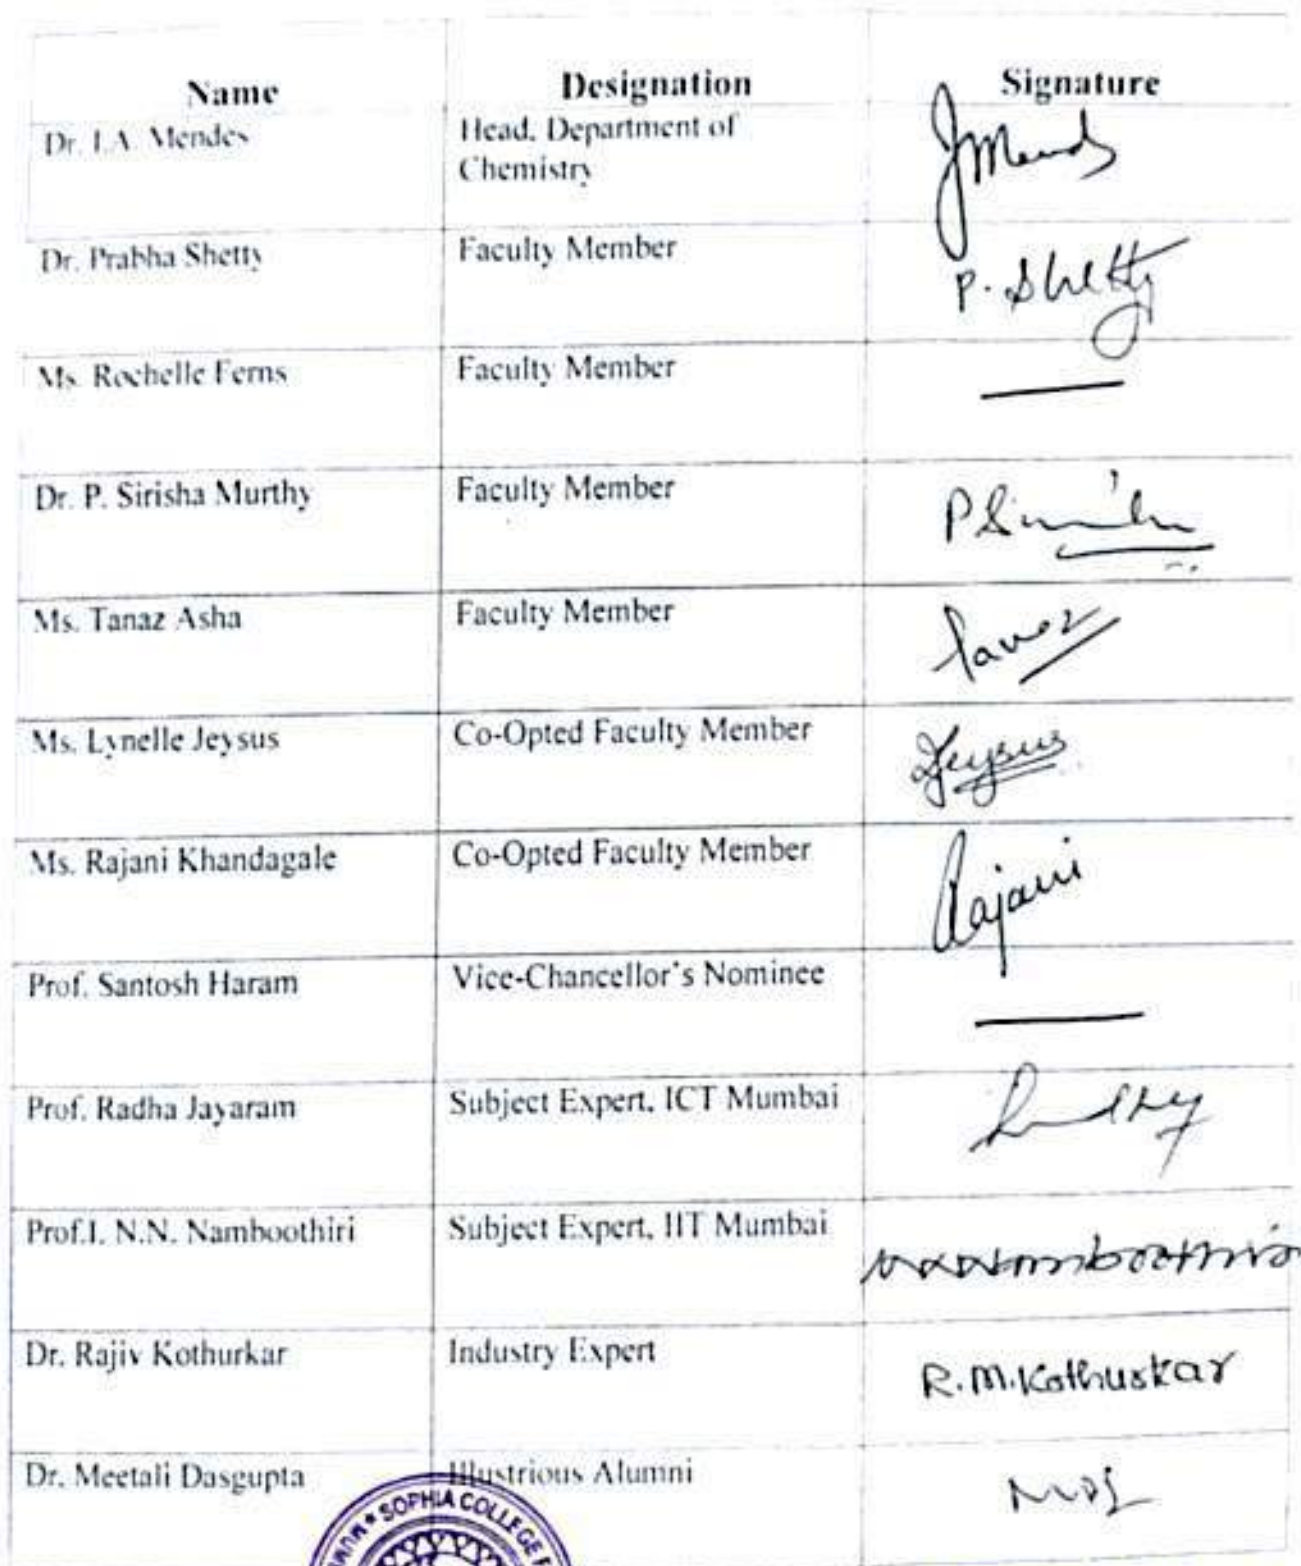 Name Designation Signature
Dr. I.A. Mendes Head, Department of
Chemistry
JMends
Dr. Prabha Shetty Faculty Member P. Shetty
Ms. Rochelle Ferns Faculty Member
Dr. P. Sirisha Murthy Faculty Member
Ms. Tanaz Asha Faculty Member
Ms. Lynelle Jeysus Co-Opted Faculty Member Jeysus
Ms. Rajani Khandagale Co-Opted Faculty Member Rajani
Prof. Santosh Haram Vice-Chancellor's Nominee
Prof. Radha Jayaram Subject Expert, ICT Mumbai
Prof.I. N.N. Namboothiri Subject Expert, IIT Mumbai
Dr. Rajiv Kothurkar Industry Expert R.M.Kothurkar
Dr. Meetali Dasgupta Illustrious Alumni
SOPHIA COLLEGE